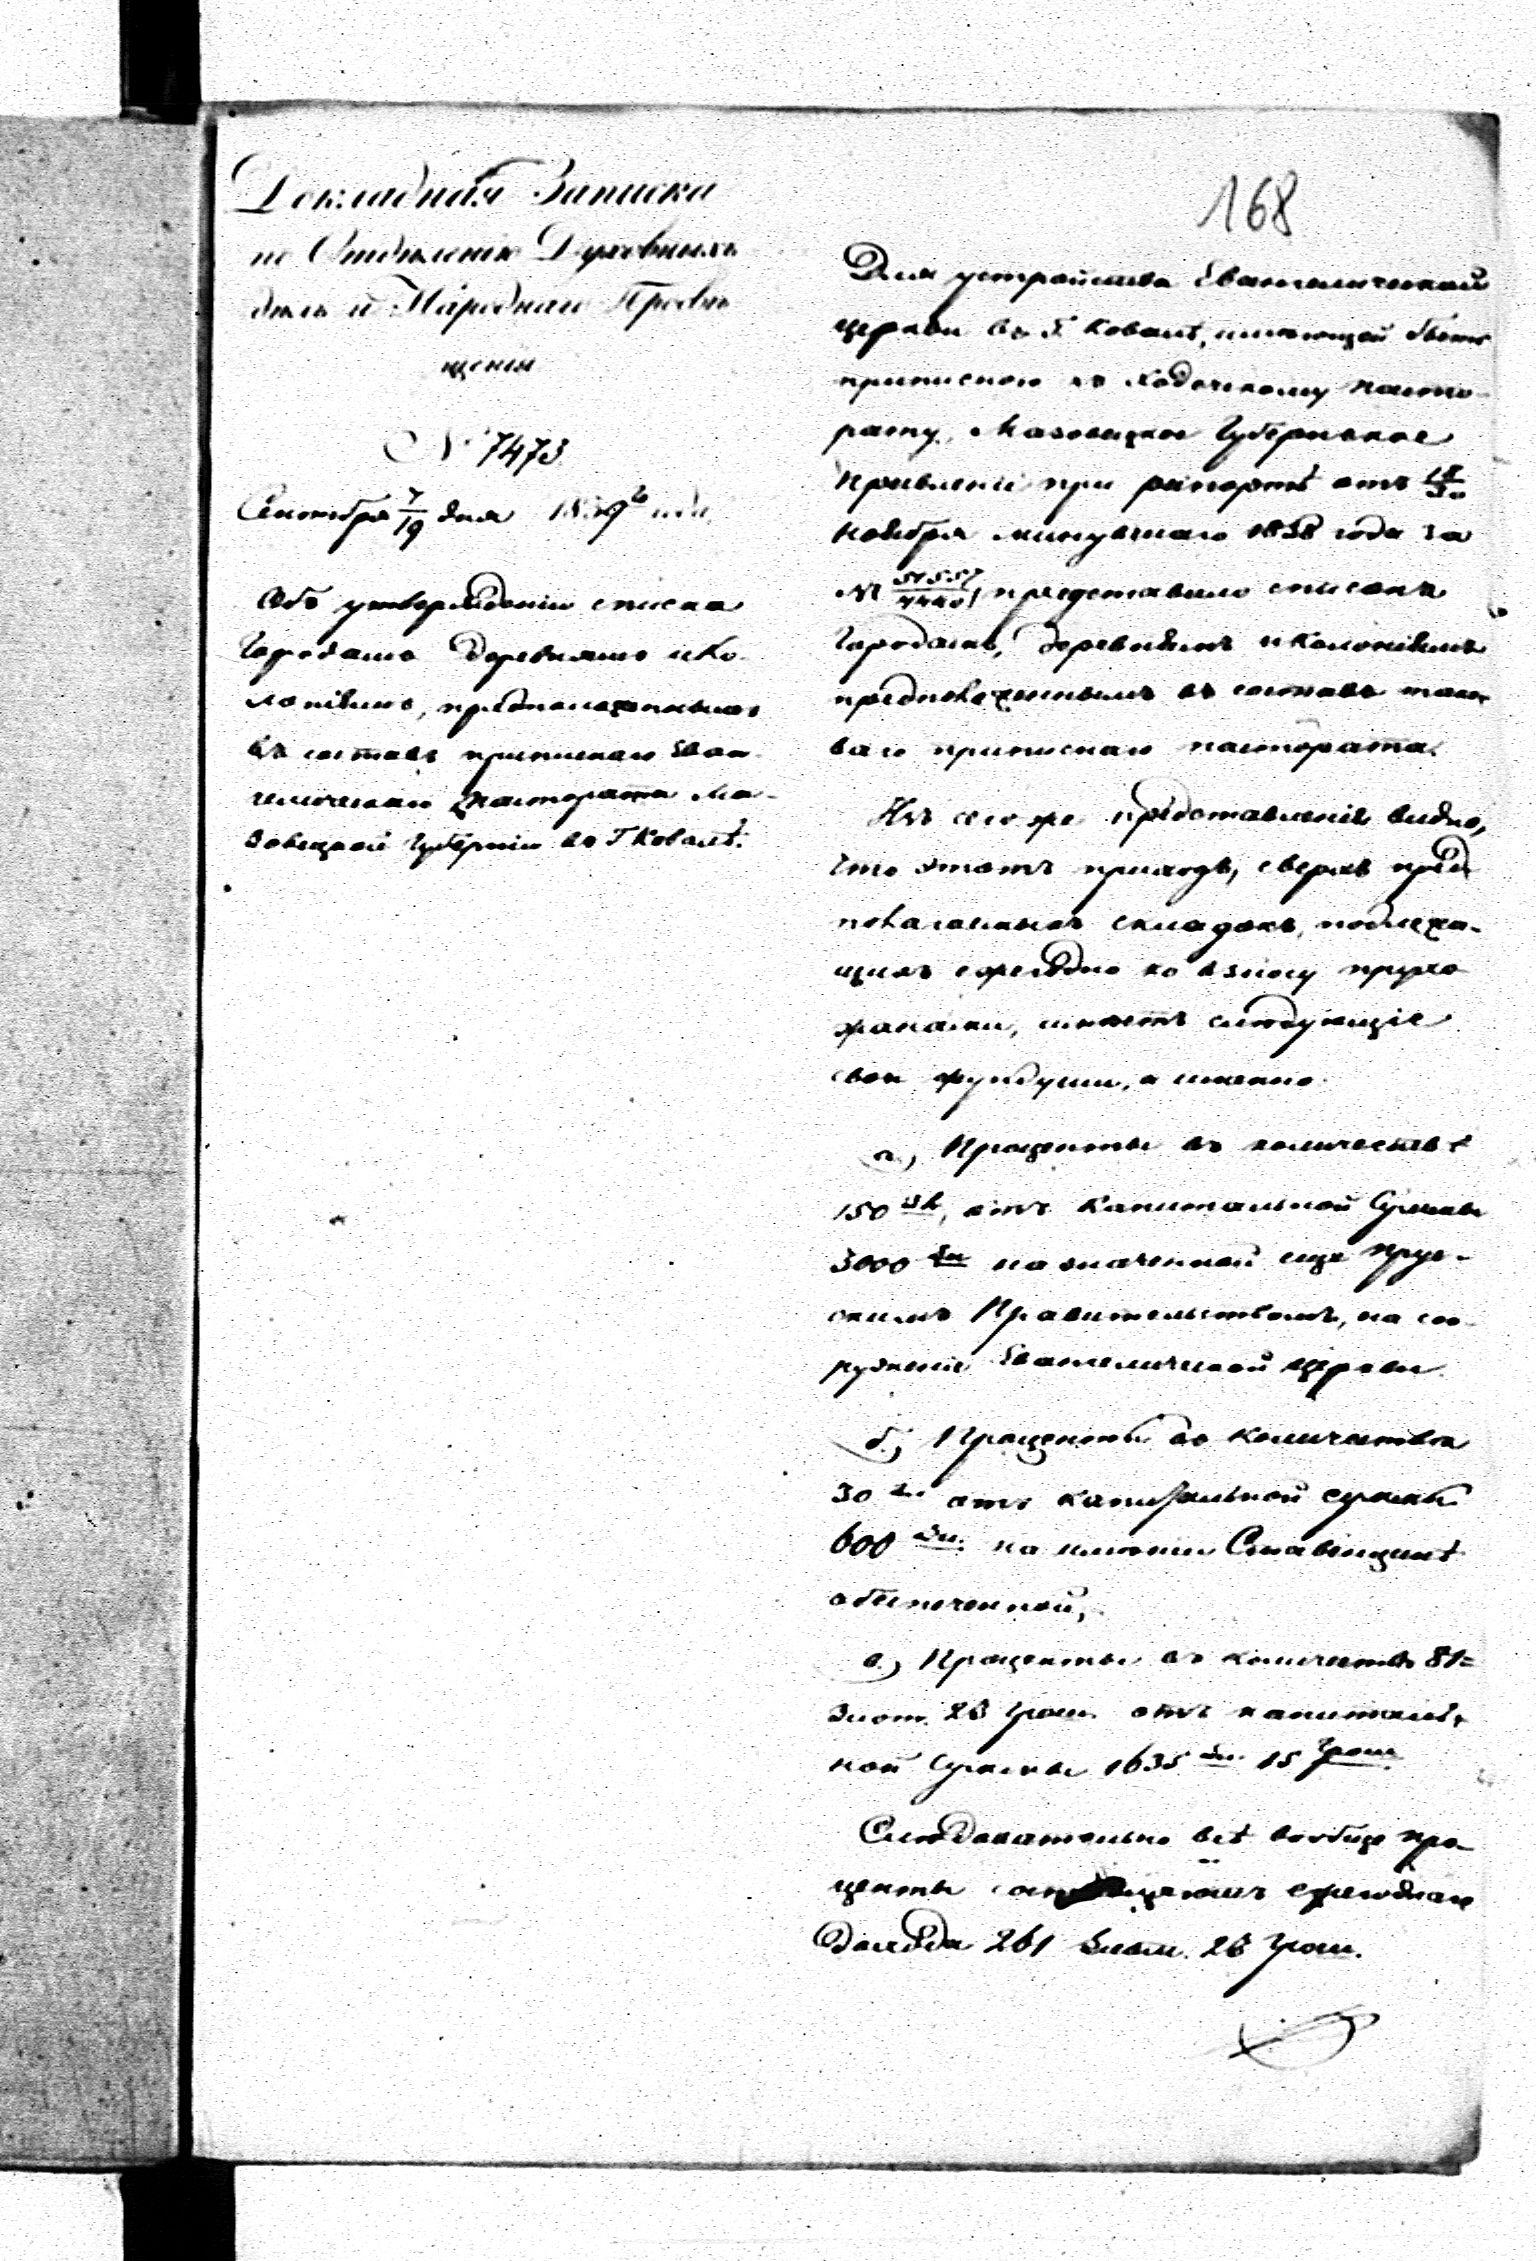 Докладная Записка
по Отделенію Духовныхъ
делъ и Народнаго Просве
щенія
№ 7473
Сентября 7/19 дня 1839 года
Объ утвержденіи списка
Городамъ Деревнямъ и Ко
лоніямъ, предполагаемымъ
въ составъ приписнаго Еван
гелическаго пастората Ма-
зовецкой Губерніи въ Г Ковалѣ.
168
Для устройства Евангелической
церкви въ Г. Ковалѣ, имѣющей быть
приписною къ Ходечскому пасто-
рату, Мазовецкое Губернское
Правленіе при рапортѣ отъ 18/30
Ноября минувшаго 1838 года за
№ представило списокъ
Городамъ, Деревнямъ и Колоніямъ
предположеннымъ въ составъ тако
ваго приписнаго пастората.
Изъ сего же представленія видно,
что этотъ приходъ, сверхъ пред
полагаемыхъ складокъ, подлежа-
щихъ ежегодно ко взносу прихо
жанами, имѣетъ слѣдующіе
свои фундуши, а именно:
а) Проценты въ количествѣ
150 Зл, отъ Капитальной Суммы
3000 Зл назначенной еще Прус-
скимъ Правительствомъ, на соо
руженіе Евангелической Церкви.
б) Проценты въ количествѣ
30 Зл отъ капитальной суммы
600 Зл. на имѣніи
обезпеченной,
в) Проценты въ количествѣ 81=
Злот. 23 Грош. отъ капиталь-
ной Суммы 1635 Зл. 15 Грош.
Слѣдовательно всѣ вообще про
центы ежегоднаго
дохода 261 Злот. 23 Грош.